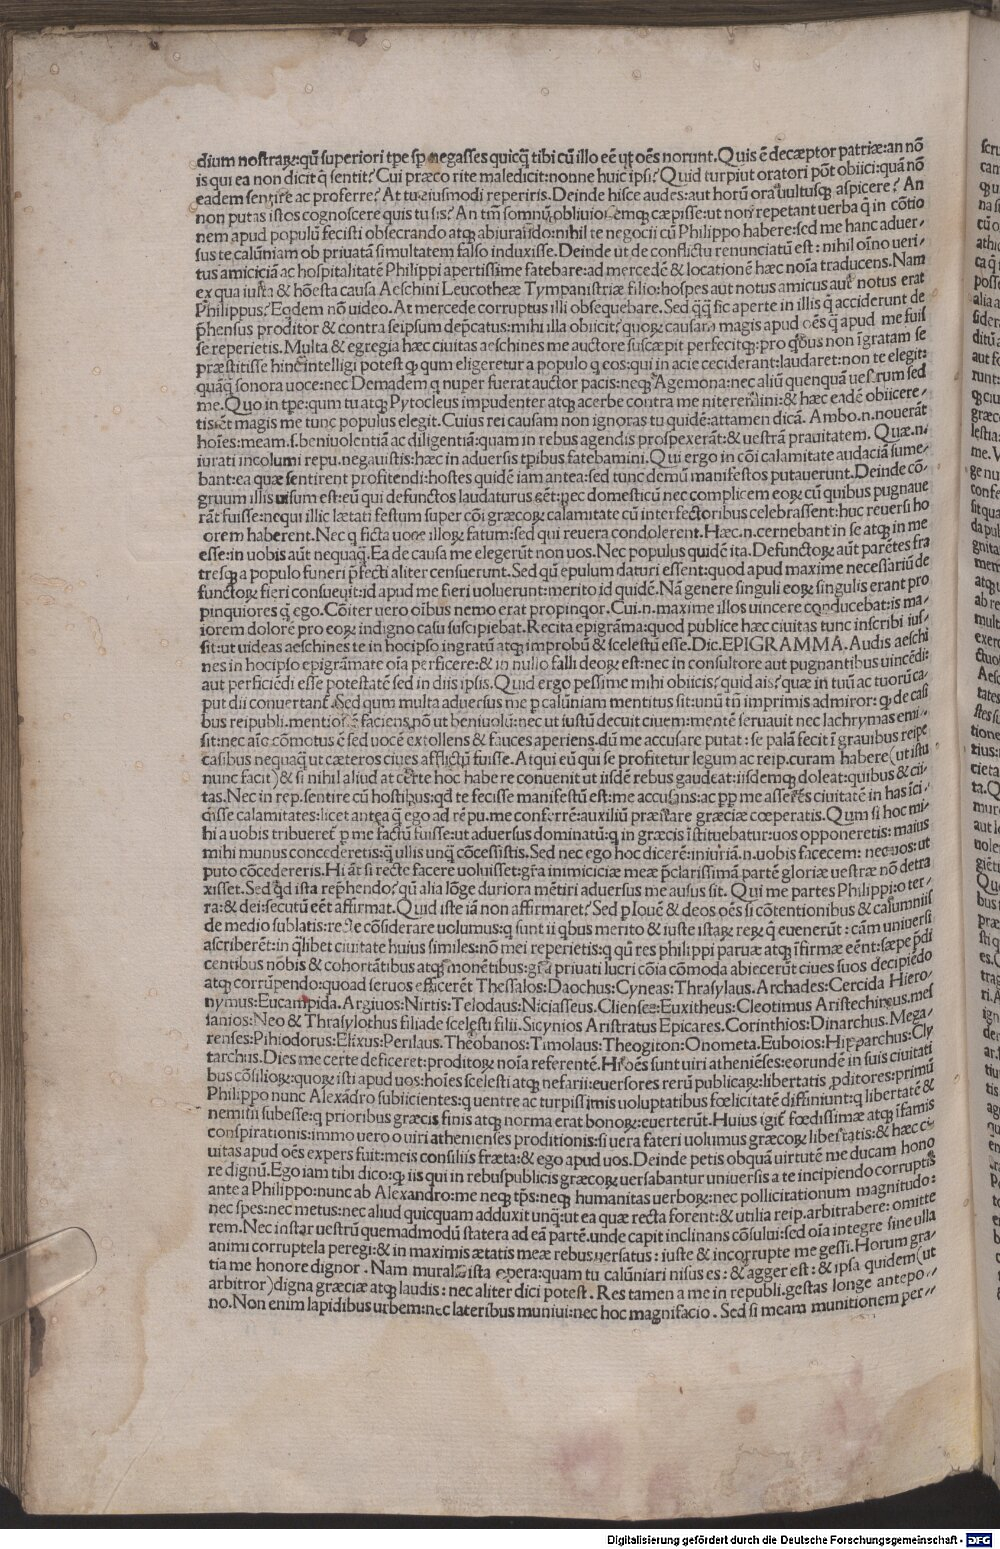 dium nostraꝝ:qū superiori tꝑe sꝑ negasses quicq̄ tibi cū illo eē ut oēs norunt. Quis ē decæptor patriæ:an nō
is qui ea non dicit q̄ sentit? Cui præco rite maledicit:nonne huic ipsi? Quid turpiut oratori pōt obiici:quā nō
eadem sentire ac proferre? At tu eiusmodi reperiris. Deinde hisce audes:aut horū ora uultusqꝫ aspicere? An
non putas istos cognoscere quis tu sis? An tm̄ somnū obliuionemqꝫ cæpisse:ut non repetant uerba q̄ in cōtio
nem apud populū fecisti obsecrando atqꝫ abiurando:nihil te negocii cū Philippo habere:sed me hanc aduer/
sus te calūniam ob priuatā simultatem falso induxisse. Deinde ut de conflictu renunciatū est: nihil oīno ueri/
tus amiciciā ac hospitalitatē Philippi apertissime fatebare:ad mercedē & locationē hæc noīa traducens. Nam
ex qua iusta & hōesta causa Aeschini Leucotheæ Tympanistriæ filio:hospes aut notus amicus aut notus erat
Philippus? Eqdem nō uideo. At mercede corruptus illi obsequebare. Sed q̄q̄ sic aperte in illis q̄ acciderunt de
p̄hensus proditor & contra seipsum dep̄catus:mihi illa obiicit? quoꝝ causam magis apud oēs q̄ apud me fuis
se reperietis. Multa & egregia hæc ciuitas aeschines me auctore suscæpit perfecitqꝫ:pro qbus non īgratam se
præstitisse hinc intelligi potest qꝫ qum eligeretur a populo q eos:qui in acie ceciderant:laudaret:non te elegit:
quāq̄ sonora uoce:nec Demadem q nuper fuerat auctor pacis:neqꝫ Agemona:nec aliū quenquā uestrum sed
me. Quo in tꝑe:qum tu atqꝫ Pytocleus impudenter atqꝫ acerbe contra me niteremini:& hæc eadē obiicere/
tis:ēt magis me tunc populus elegit. Cuius rei causam non ignoras tu quidē:attamen dicā. Ambo.n.nouerāt
hoīes:meam.s.beniuolentiā ac diligentiā:quam in rebus agendis prospexerāt:& uestrā prauitatem. Quæ.n.
iurati incolumi repu.negauistis:hæc in aduersis tꝑibus fatebamini. Qui ergo in cōi calamitate audaciā sume/
bant:ea quæ sentirent profitendi:hostes quidē iam antea:sed tunc demū manifestos putauerunt. Deinde cō/
gruum illis uisum est:eū qui defunctos laudaturus eēt:nec domesticū nec complicem eoꝝ cū quibus pugnaue
rāt fuisse:nequi illic lætati festum super cōi græcoꝝ calamitate cū interfectoribus celebrassent:huc reuersi ho
orem haberent. Nec q ficta uoce illoꝝ fatum:sed qui reuera condolerent. Hæc.n.cernebant in se atqꝫ in me
esse:in uobis aūt nequaq̄. Ea de causa me elegerūt non uos. Nec populus quidē ita. Defunctoꝝ aūt parētes fra
tresqꝫ a populo funeri p̄fecti aliter censuerunt. Sed qū epulum daturi essent:quod apud maxime necessariū de
functoꝝ fieri consueuit:id apud me fieri uoluerunt:merito id quidē. Nā genere singuli eoꝝ singulis erant pro
pinquiores q̄ ego. Cōiter uero oībus nemo erat propinqor. Cui.n.maxime illos uincere conducebat:is ma/
iorem dolorē pro eoꝝ indigno casu suscipiebat. Recita epigrāma:quod publice hæc ciuitas tunc inscribi ius/
sit:ut uideas aeschines te in hocipso ingratū atqꝫ improbū & scelestū esse. Dic. EPIGRAMMA. Audis aeschi
nes in hocipso epigrāmate oīa perficere:& in nullo falli deoꝝ est:nec in consultore aut pugnantibus uincēdi:
aut perficiēdi esse potestatē sed in diis ipsis. Quid ergo pessime mihi obiicis? quid ais? quæ in tuū ac tuorū ca/
put dii conuertant. Sed qum multa aduersus me ꝑ calūniam mentitus sit:unū tn̄ imprimis admiror: qꝫ de casi
bus reipubli.mentionē faciens,nō ut beniuolū:nec ut iustū decuit ciuem:mentē seruauit nec lachrymas emi/
sit:nec aīo cōmotus ē sed uocē extollens & fauces aperiens.dū me accusare putat: se palā fecit ī grauibus reipe
casibus nequaq̄ ut cæteros ciues afflictū fuisse. Atqui eū qui se profitetur legum ac reip.curam habere(ut istu
nunc facit)& si nihil aliud at certe hoc habere conuenit ut iisdē rebus gaudeat:iisdemqꝫ doleat:quibus & ciui/
tas. Nec in rep.sentire cū hostibus:qd te fecisse manifestū est:me accusans:ac ꝑꝑ me asseres ciuitatē in has īci/
disse calamitates:licet antea q̄ ego ad rē pu.me conferrē:auxiliū præstare græciæ cœperatis. Qum si hoc mi/
hi a uobis tribueret̄ ꝑ me factū fuisse:ut aduersus dominatū:q in græcis īstituebatur:uos opponeretis: maius
mihi munus concederetis:q̄ ullis unq̄ cōcessistis. Sed nec ego hoc dicerē:iniuriā.n.uobis facecem: nec uos:ut
puto cōcedereris. Hi āt si recte facere uoluisset:gr̄a inimiciciæ meæ p̄clarissimā partē gloriæ uestræ nō detra
xisset. Sed qd ista rep̄hendo? qū alia lōge duriora mētiri aduersus me ausus sit. Qui me partes Philippi:o ter/
ra:& dei:secutū eēt affirmat. Quid iste iā non affirmaret? Sed ꝑ Iouē & deos oēs si cōtentionibus & calumniis
de medio sublatis:recte cōsiderare uolumus:q sunt ii qbus merito & iuste istaꝝ reꝝ q̄ euenerūt: cām uniuersi
ascriberēt:in qlibet ciuitate huius similes:nō mei reperietis:q qū res philippi paruæ atqꝫ īfirmæ eēnt:sæpe p̄di
centibus nōbis & cohortātibus atqꝫ monētibus:gr̄a priuati lucri cōia cōmoda abiecerūt ciues suos decipiēdo
atqꝫ corrūpendo:quoad seruos efficerēt Thessalos:Daochus:Cyneas:Thrasylaus. Archades: Cercida Hiero/
nymus:Eucampida. Argiuos:Nirtis:Telodaus:Niciasseus. Clienses:Euxitheus:Cleotimus Aristechireus.mes
sanios:Neo & Thrasylothus filiade scelesti filii. Sicynios Aristratus Epicares. Corinthios:Dinarchus. Mega/
renses:Pihiodorus:Elixus:Perilaus. Thebanos:Timolaus:Theogiton:Onometa. Euboios:Hipparchus: Cly
tarchus. Dies me certe deficeret:proditoꝝ noīa referentē. Hi oēs sunt uiri atheniēses:eorundē in suis ciuitati
bus cōsilioꝝ:quoꝝ isti apud uos:hoīes scelesti atqꝫ nefarii:euersores rerū publicaꝝ:libertatis ꝓditores:primū
Philippo nunc Alexādro subiicientes:q uentre ac turpissimis uoluptatibus fœlicitatē diffiniunt:q libertatē &
nemini subesse:q prioribus græcis finis atqꝫ norma erat bonoꝝ:euerterūt. Huius igit̄ fœdissimæ atqꝫ īfamis
conspirationis:immo uero o uiri athenienses proditionis:si uera fateri uolumus græcoꝝ libertatis:& hæc ci
uitas apud oēs expers fuit:meis consiliis fræta:& ego apud uos. Deinde petis obquā uirtutē me ducam hono
re dignū. Ego iam tibi dico:qꝫ iis qui in rebuspublicis græcoꝝ uersabantur uniuersis a te incipiendo corruptis
ante a Philippo:nunc ab Alexandro:me neqꝫ tp̄s:neqꝫ humanitas uerboꝝ:nec pollicitationum magnitudo:
nec spes:nec metus:nec aliud quicquam adduxit unq̄:ut ea quæ recta forent:& utilia reip.arbitrabere: omitte
rem. Nec instar uestrū quemadmodū statera ad eā partē.unde capit inclinans cōsului:sed oīa integre sine ulla
animi corruptela peregi:& in maximis ætatis meæ rebus uersatus : iuste & incorrupte me gessi. Horum gra/
tia me honore dignor . Nam muralis ista opera:quam tu calūniari nisus es : & agger est : & ipsa quidem(ut
arbitror)digna græciæ atqꝫ laudis : nec aliter dici potest . Res tamen a me in republi.gestas longe antepo//
no. Non enim lapidibus urbem:nec lateribus muniui:nec hoc magnifacio . Sed si meam munitionem per//
Digitalisierung gefördert durch die Deutsche Forschungsgemeinschaft - DFG